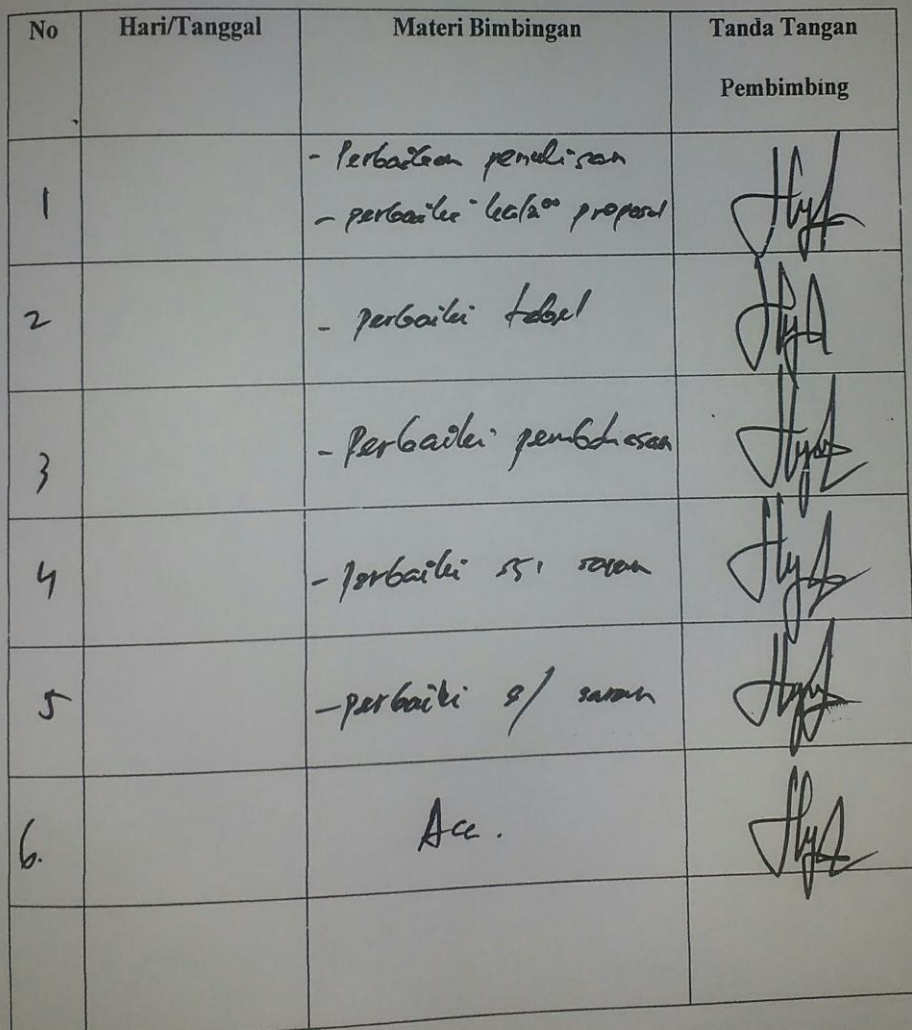 No Hari/Tanggal Materi Bimbingan Tanda Tangan
Pembimbing
1 - Perbaikan penulisan
- perbaiki kata² proposal
2 - perbaiki tabel
3 - Perbaiki pembahasan
4 - perbaiki saran
5 - perbaiki s/ saran
6. Acc.